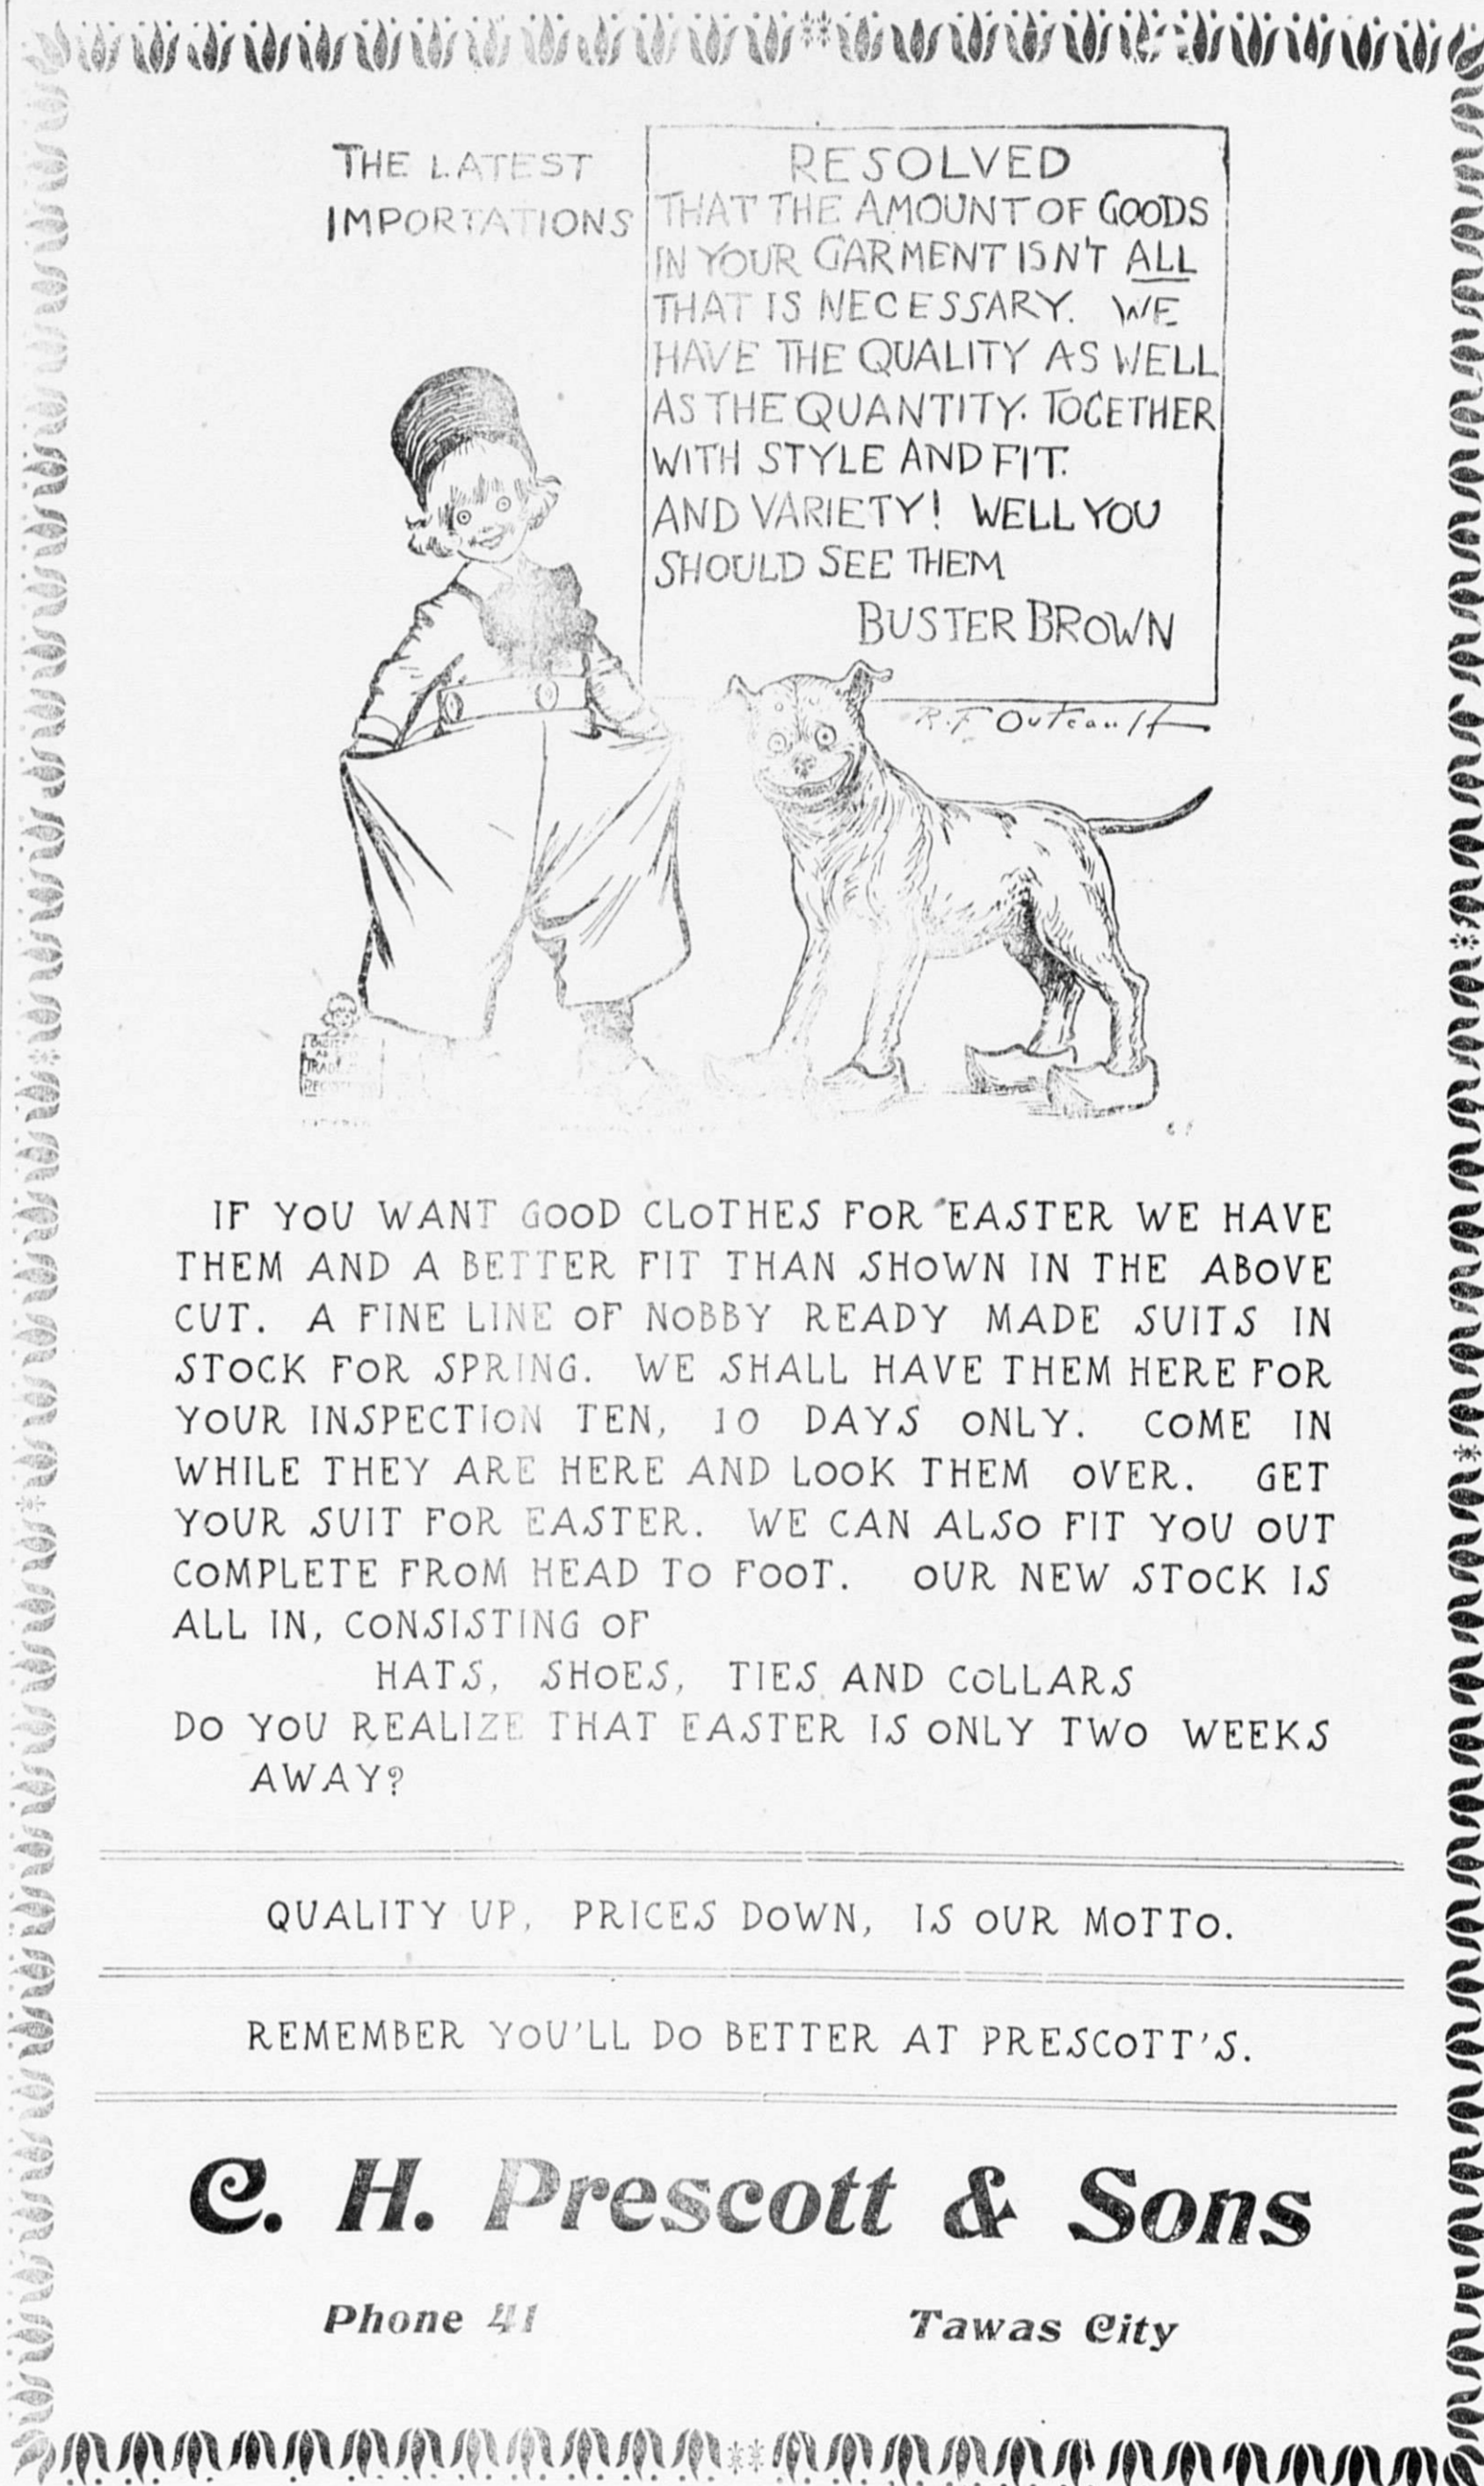 THE LATEST
IMPORTATIONS
RESOLVED
THAT THE AMOUNT OF GOODS
IN YOUR GARMENT ISN'T ALL
THAT IS NECESSARY. WE
HAVE THE QUALITY AS WELL
AS THE QUANTITY. TOGETHER
WITH STYLE AND FIT.
AND VARIETY! WELL YOU
SHOULD SEE THEM
BUSTER BROWN
R.F. Outcault
IF YOU WANT GOOD CLOTHES FOR EASTER WE HAVE
THEM AND A BETTER FIT THAN SHOWN IN THE ABOVE
CUT. A FINE LINE OF NOBBY READY MADE SUITS IN
STOCK FOR SPRING. WE SHALL HAVE THEM HERE FOR
YOUR INSPECTION TEN, 10 DAYS ONLY. COME IN
WHILE THEY ARE HERE AND LOOK THEM OVER. GET
YOUR SUIT FOR EASTER. WE CAN ALSO FIT YOU OUT
COMPLETE FROM HEAD TO FOOT. OUR NEW STOCK IS
ALL IN, CONSISTING OF
HATS, SHOES, TIES AND COLLARS
DO YOU REALIZE THAT EASTER IS ONLY TWO WEEKS
AWAY?
QUALITY UP, PRICES DOWN, IS OUR MOTTO.
REMEMBER YOU'LL DO BETTER AT PRESCOTT'S.
C. H. Prescott & Sons
Phone 41 Tawas City